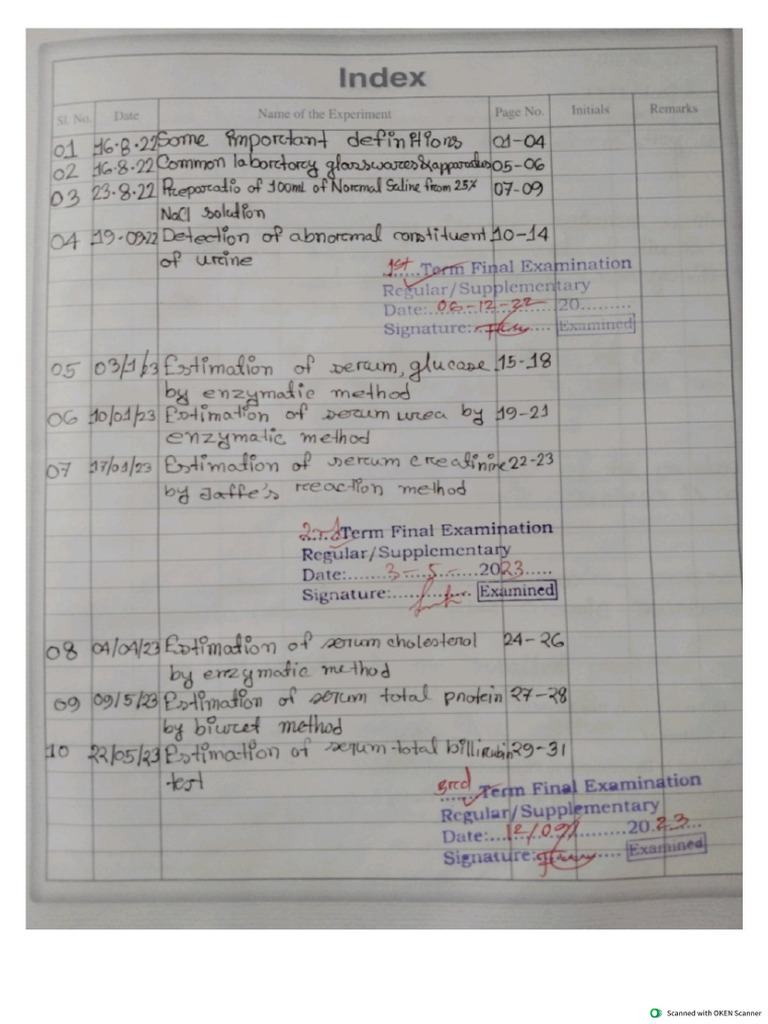 Index
Sl. No. Date Name of the Experiment Page No. Initials Remarks
01 16.8.22 Some important definitions 01-04
02 16.8.22 Common laboratory glasswares & apparatus 05-06
03 23.8.22 Preparatio of 100ml of Normal Saline from 25% 07-09
NaCl solution
04 19-09-22 Detection of abnormal constituent 10-14
of urine
1st Term Final Examination
Regular/Supplementary
Date:....06-12-22 20.........
Signature:........ Examined
05 03/1/23 Estimation of serum, glucose 15-18
by enzymatic method
06 10/01/23 Estimation of serum urea by 19-21
enzymatic method
07 17/01/23 Estimation of serum creatinine 22-23
by Jaffe's reaction method
2nd Term Final Examination
Regular/Supplementary
Date:.......3-.5-......2023.....
Signature:............. Examined
08 04/04/23 Estimation of serum cholesterol 24-26
by enzymatic method
09 09/5/23 Estimation of serum total protein 27-28
by biuret method
10 22/05/23 Estimation of serum total billirubin 29-31
test
3rd Term Final Examination
Regular/Supplementary
Date:...12/09/.........20.23...
Signature:............ Examined
Scanned with OKEN Scanner